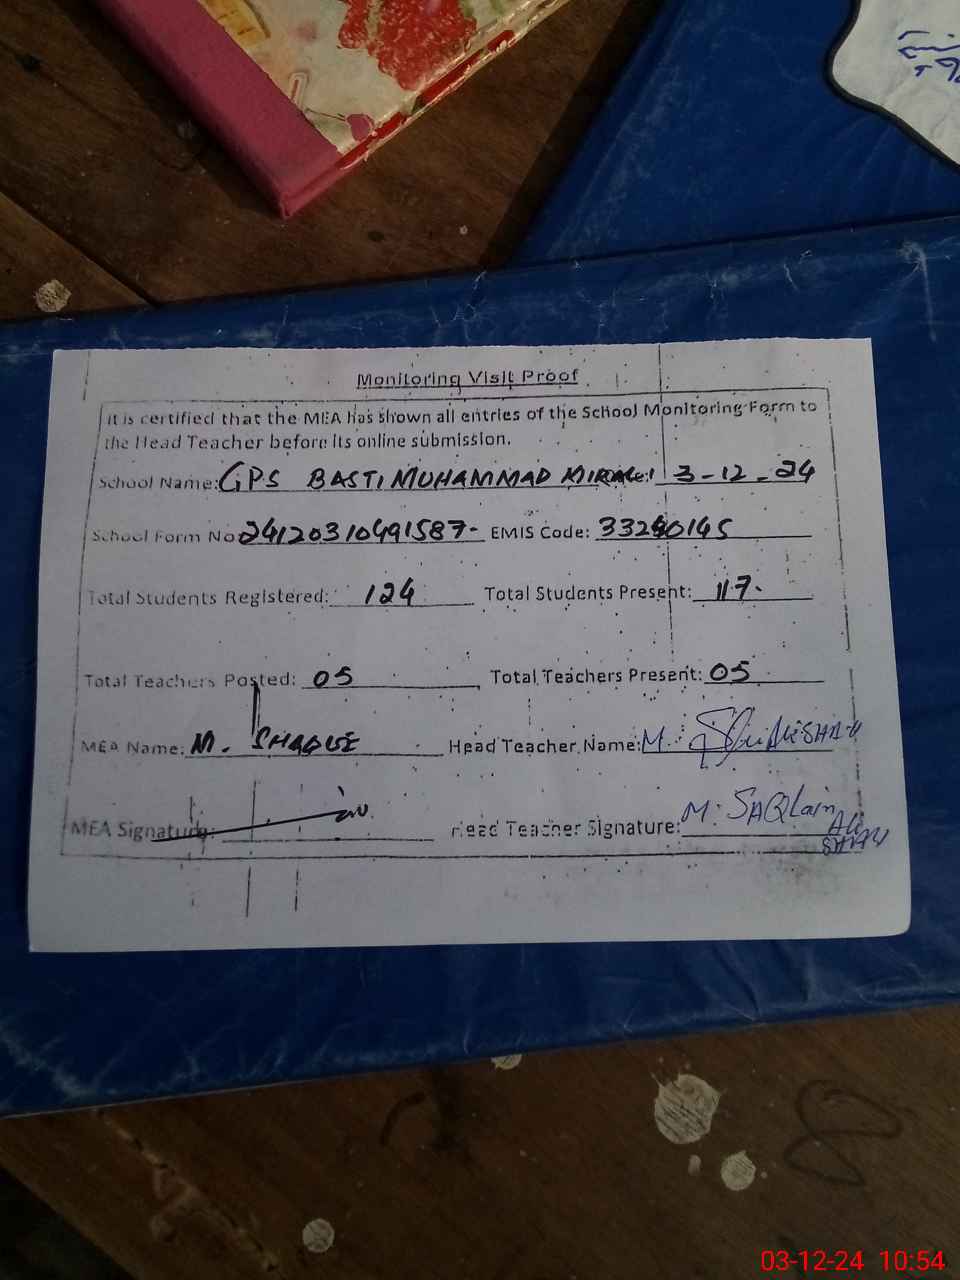 Monitoring Visit Proof
It is certified that the MEA has shown all entries of the School Monitoring Form to
the Head Teacher before its online submission.
School Name: GPS BASTI MUHAMMAD 3-12-24
School Form No: 24120310491587- EMIS Code: 33240145
Total Students Registered: 124 Total Students Present: 117.
Total Teachers Posted: 05 Total Teachers Present: 05
MEA Name: M. SHAQUE Head Teacher Name: M. SHAH
MEA Signature: Head Teacher Signature: M. SAQLain
Ali
SHAH
03-12-24 10:54